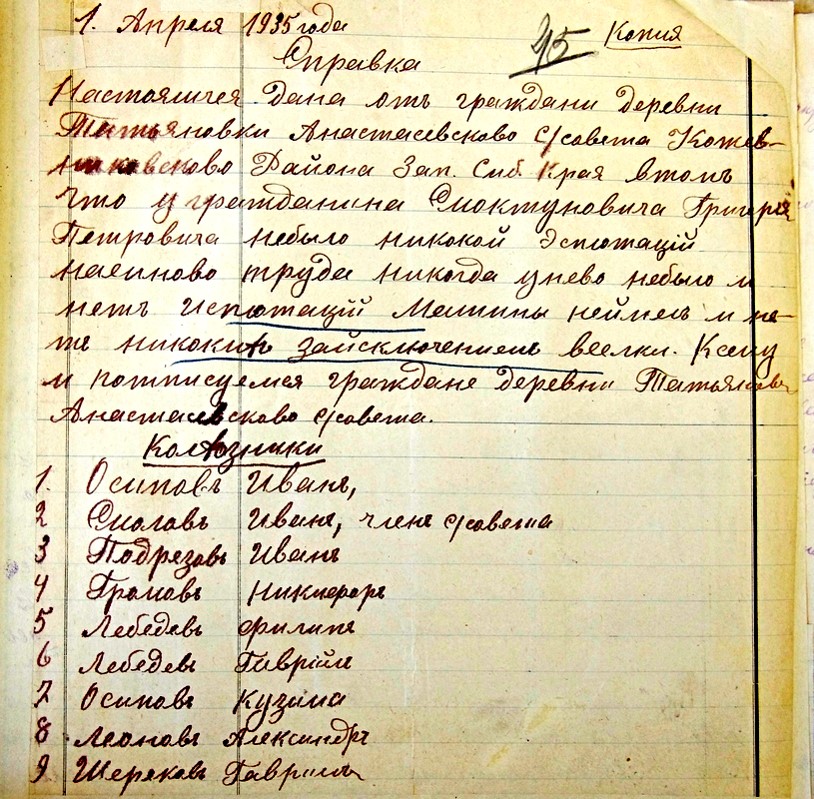 1. Апреля 1935 года
45 Копия
Справка
Настоящея дана отъ граждани деревни
Татьяновки Анастасевсково с/совета Кожев-
никовсково Района Зап. Сиб. Края втомъ
что у гражданина Смоктуновича Григория
Петровича небыло никокой Эспютаций
наемново труда никогда унево небыло и
нетъ Испютаций Машины неймел и не-
тъ никокихъ зайсключением веелки. Ксему
и потписуемся граждане деревни Татьяновки
Анастасевсково с/совета.
Колхозники
1. Осиповъ Иванъ,
2 Смоловъ Иванъ, членъ с/совета
3 Подрезовъ Иванъ
4 Громовъ Никифоръ
5 Лебедевъ Филипъ
6 Лебедевъ Гаврiилъ
7 Осиповъ Кузьма
8 Леоновъ Александръ
9 Шереховъ Гаврiилъ